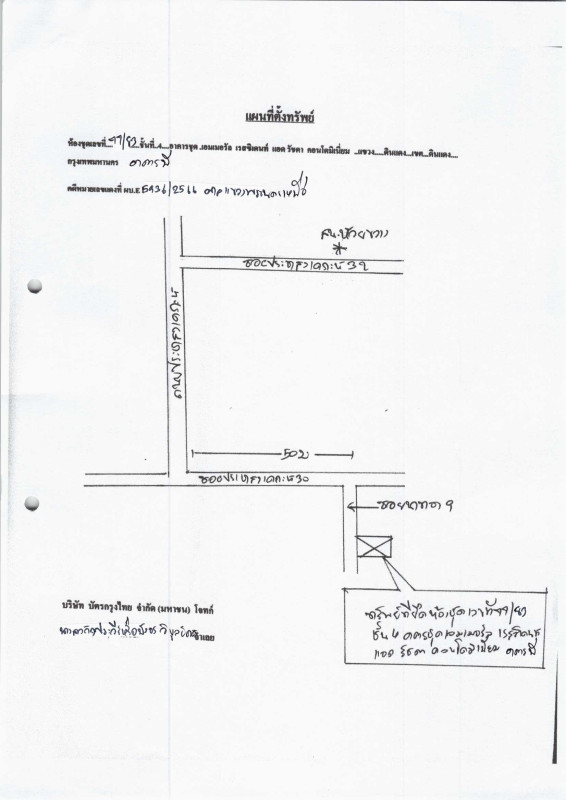 แผนที่ตั้งทรัพย์
ห้องชุดเลขที่...99/82 ชั้นที่..4....อาคารชุด..เอมเมอรัล เรสซิเดนท์ แอด รัชดา คอนโดมิเนียม ...แขวง.....ดินแดง....เขต...ดินแดง....
กรุงเทพมหานคร อาคารบี
คดีหมายเลขแดงที่ ผบ.E 5936/2566 ศาลแขวงพระนครเหนือ
สน.ห้วยขวาง
ซอยประชาสงเคราะห์ 32
ถนนประชาสงเคราะห์
50 ม
ซอยประชาสงเคราะห์ 30
ซอยนาทอง 9
บริษัท บัตรกรุงไทย จำกัด (มหาชน) โจทก์
จำเลย
ทรัพย์ที่ยึดห้องชุดเลขที่ 99/82
ชั้น 4 อาคารชุดเอมเมอรัล เรสซิเดนท์
แอด รัชดา คอนโดมิเนียม อาคารบี